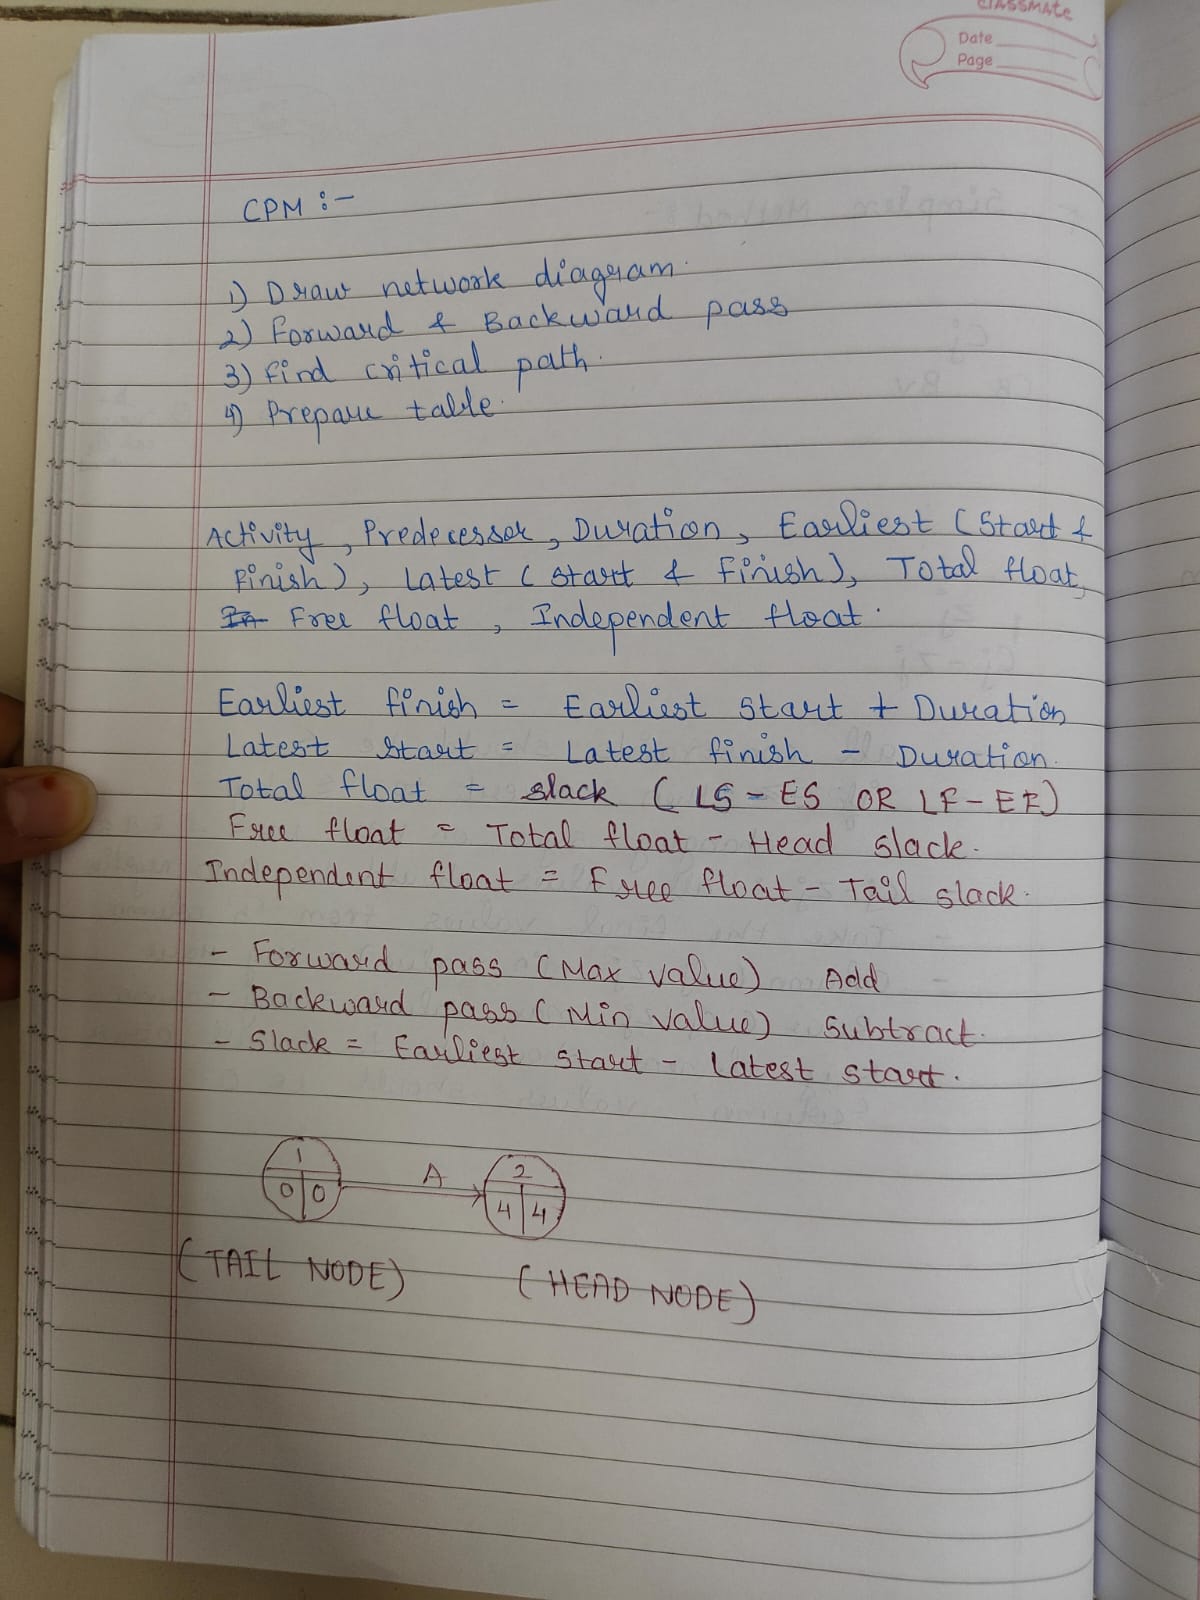 classmate
Date
Page
CPM :-
1) Draw network diagram.
2) Forward & Backward pass
3) Find critical path.
4) Prepare table.
Activity, Predecessor, Duration, Earliest (Start &
Finish), Latest (Start & Finish), Total float,
Free float, Independent float.
Earliest finish = Earliest Start + Duration
Latest Start = Latest finish - Duration.
Total float = slack (LS - ES OR LF - EF)
Free float = Total float - Head slack.
Independent float = Free float - Tail slack.
- Forward pass (Max value) Add
- Backward pass (Min value) Subtract.
- Slack = Earliest start - Latest start.
1 A 2
0 0 4 4
(TAIL NODE) (HEAD NODE)